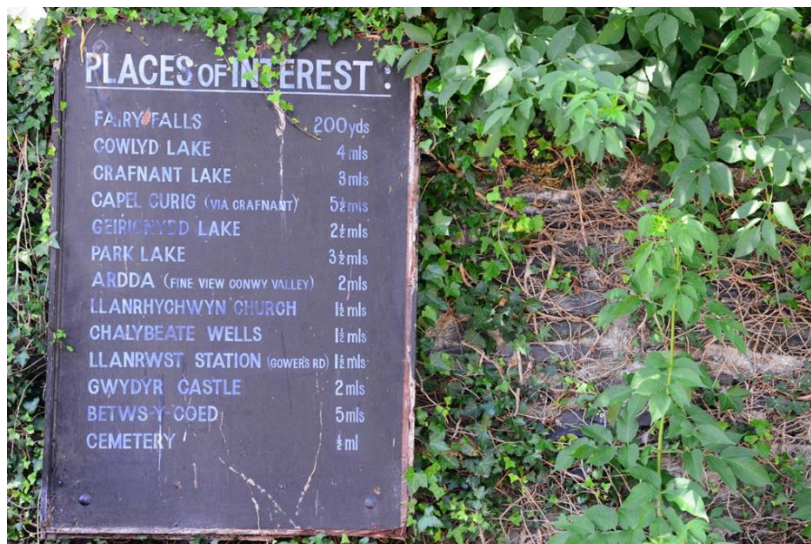 PLACES OF INTEREST :
FAIRY FALLS 200yds
COWLYD LAKE 4 mls
CRAFNANT LAKE 3 mls
CAPEL CURIG (VIA CRAFNANT) 5½ mls
GEIRIONYDD LAKE 2½ mls
PARK LAKE 3½ mls
ARDDA (FINE VIEW CONWY VALLEY) 2 mls
LLANRHYCHWYN CHURCH 1½ mls
CHALYBEATE WELLS 1½ mls
LLANRWST STATION (GOWER'S RD) 1½ mls
GWYDYR CASTLE 2 mls
BETWS-Y-COED 5 mls
CEMETERY ½ ml